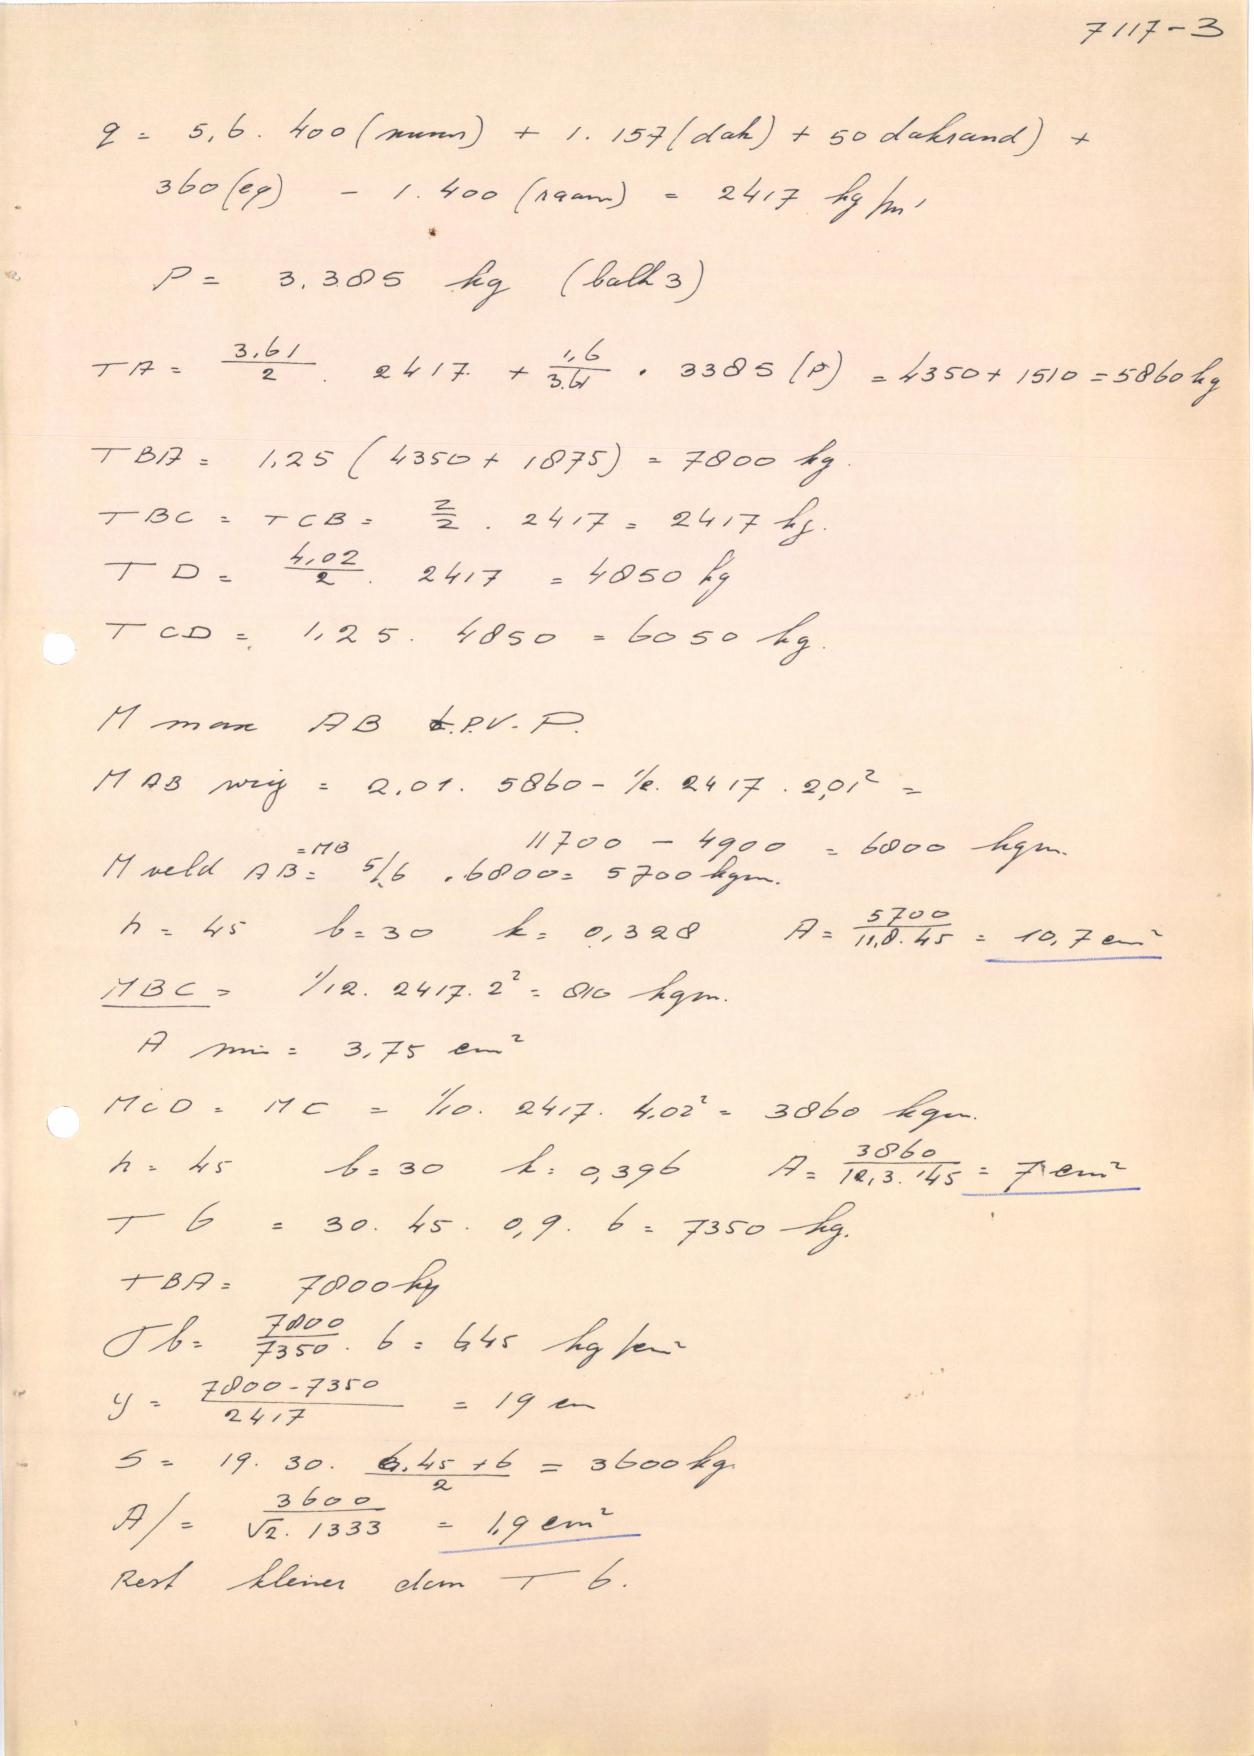 7117-3
q = 5,6. 400 (muur) + 1. 157 (dak) + 50 dakrand) +
360 (eg) - 1. 400 (raam) = 2417 kg/m'
P = 3.385 kg (balk 3)
TA = 3,61/2 . 2417 + 1,6/3.61 . 3385 (P) = 4350 + 1510 = 5860 kg
TBA = 1,25 (4350 + 1875) = 7800 kg.
TBC = TCB = 2/2 . 2417 = 2417 kg.
TD = 4,02/2 . 2417 = 4850 kg
TCD = 1,25. 4850 = 6050 kg.
M max AB t.p.v. P.
MAB vrij = 2,01. 5860 - 1/2. 2417 . 2,01² =
11700 - 4900 = 6800 kgm.
M veld AB = MB = 5/6 . 6800 = 5700 kgm.
h = 45 b = 30 k = 0,328 A = 5700/11,8.45 = 10,7 cm²
MBC = 1/12. 2417. 2² = 810 kgm.
A min = 3,75 cm²
MCD = MC = 1/10. 2417. 4,02² = 3860 kgm.
h = 45 b = 30 k = 0,396 A = 3860/12,3.45 = 7 cm²
T b = 30. 45. 0,9. 6 = 7350 kg.
TBA = 7800 kg
σb = 7800/7350 . 6 = 6,45 kg/cm²
y = 7800-7350/2417 = 19 cm
S = 19. 30. 6,45+6/2 = 3600 kg.
A/ = 3600/√2. 1333 = 1,9 cm²
Rest kleiner dan T b.